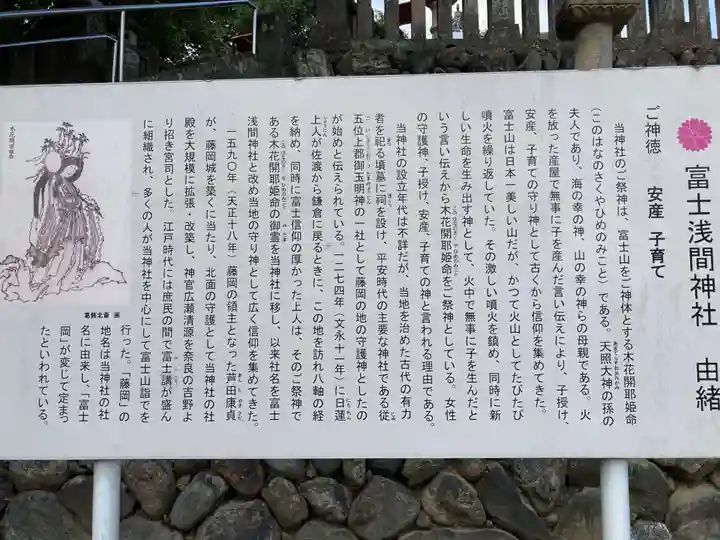 富士浅間神社 由緒
ご神徳 安産 子育て
当神社のご祭神は、富士山をご神体とする木花開耶姫命
(このはなのさくやひめのみこと)である。天照大神の孫の
夫人であり、海の幸の神、山の幸の神らの母親である。火
を放った産屋で無事に子を産んだ言い伝えにより、子授け、
安産、子育ての守り神として古くから信仰を集めてきた。
富士山は日本一美しい山だが、かつて火山としてたびたび
噴火を繰り返していた。その激しい噴火を鎮め、同時に新
しい生命を生み出す神として、火中で無事に子を生んだと
いう言い伝えから木花開耶姫命をご祭神としている。女性
の守護神、子授け、安産、子育ての神と言われる理由である。
当神社の設立年代は不詳だが、当地を治めた古代の有力
者を祀る墳墓に祠を設け、平安時代の主要な神社である従
五位上郡御玉明神の一社として藤岡の地の守護神としたの
が始めと伝えられている。一二七四年(文永十一年)に日蓮
上人が佐渡から鎌倉に戻るときに、この地を訪れ八軸の経
を納め、同時に富士信仰の厚かった上人は、そのご祭神で
ある木花開耶姫命の御霊を当神社に移し、以来社名を富士
浅間神社と改め当地の守り神として広く信仰を集めてきた。
一五九〇年(天正十八年)藤岡の領主となった芦田康貞
が、藤岡城を築くに当たり、北面の守護として当神社の社
殿を大規模に拡張・改築し、神官広瀬清源を奈良の吉野よ
り招き宮司とした。江戸時代には庶民の間で富士講が盛ん
に組織され、多くの人が当神社を中心にして富士山詣でを
行った。「藤岡」の
地名は当神社の社
名に由来し、「富士
岡」が変じて定まっ
たといわれている。
葛飾北斎 画